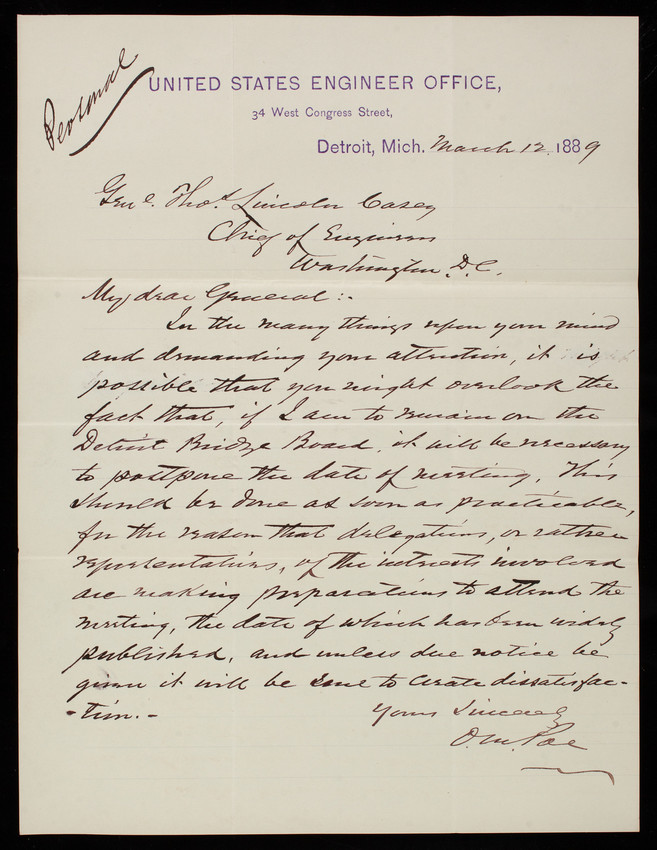 Personal
UNITED STATES ENGINEER OFFICE,
34 West Congress Street,
Detroit, Mich. March 12. 1889
Genl. Thos. Lincoln Casey
Chief of Engineers
Washington D.C.
My dear General :-
In the many things upon your mind
and demanding your attention, it is
possible that you might overlook the
fact that, if I am to remain on the
Detroit Bridge Board, it will be necessary
to postpone the date of meeting. This
should be done as soon as practicable,
for the reason that delegations, or rather
representatives, of the interests involved
are making preparations to attend the
meeting, the date of which has been widely
published, and unless due notice be
given it will be sure to create dissatisfac-
-tion.-
Yours Sincerely
O. M. Poe